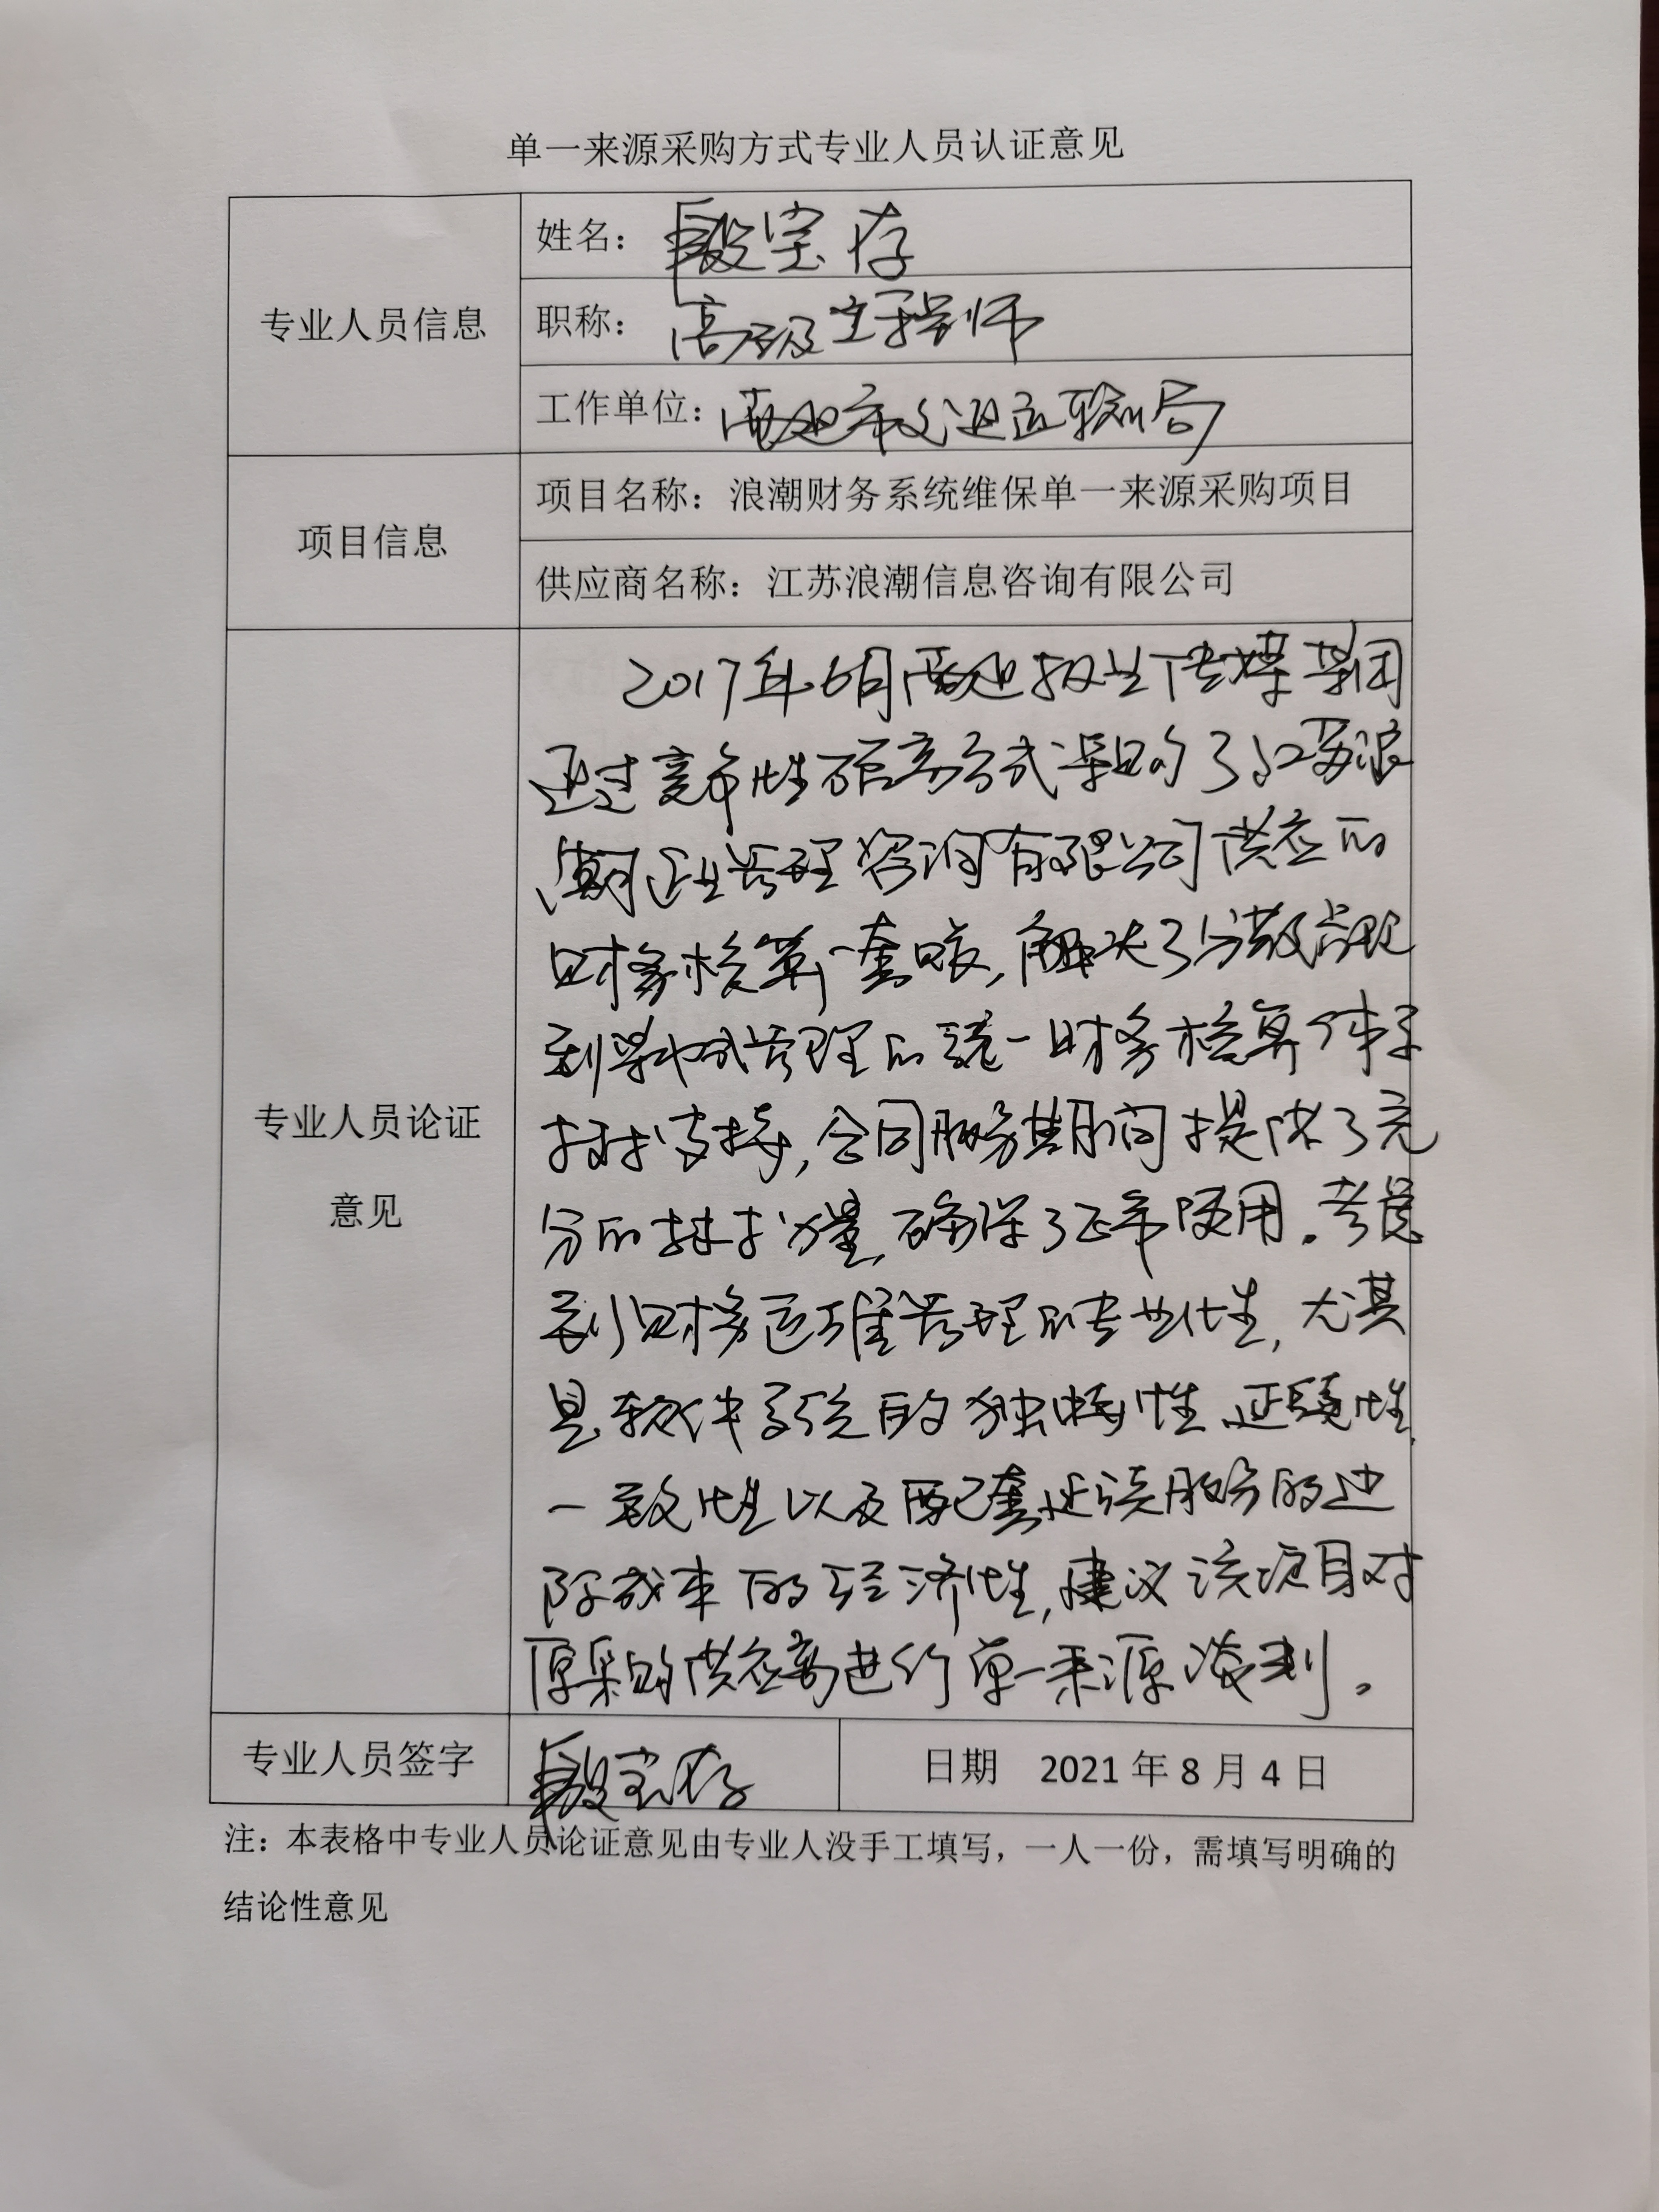 单一来源采购方式专业人员认证意见
专业人员信息
姓名：段宝存
职称：高级工程师
工作单位：商丘市交通运输局
项目信息
项目名称：浪潮财务系统维保单一来源采购项目
供应商名称：江苏浪潮信息咨询有限公司
专业人员论证
意见
2017年6月 报业传媒集团
通过竞争性磋商方式采购了江苏浪
潮企业管理咨询有限公司供应的
财务核算一套账，解决了分散管理
到集中式管理的统一财务核算体系
技术支持，合同服务期间提供了充
分的技术力量，确保了正常使用。考虑
到财务运维管理的专业化性，尤其
是软件系统的独特性、延续性、
一致性以及配套延续服务的边
际成本的经济性，建议该项目对
原采购供应商进行单一来源谈判。
专业人员签字
段宝存
日期 2021年8月4日
注：本表格中专业人员论证意见由专业人没手工填写，一人一份，需填写明确的
结论性意见